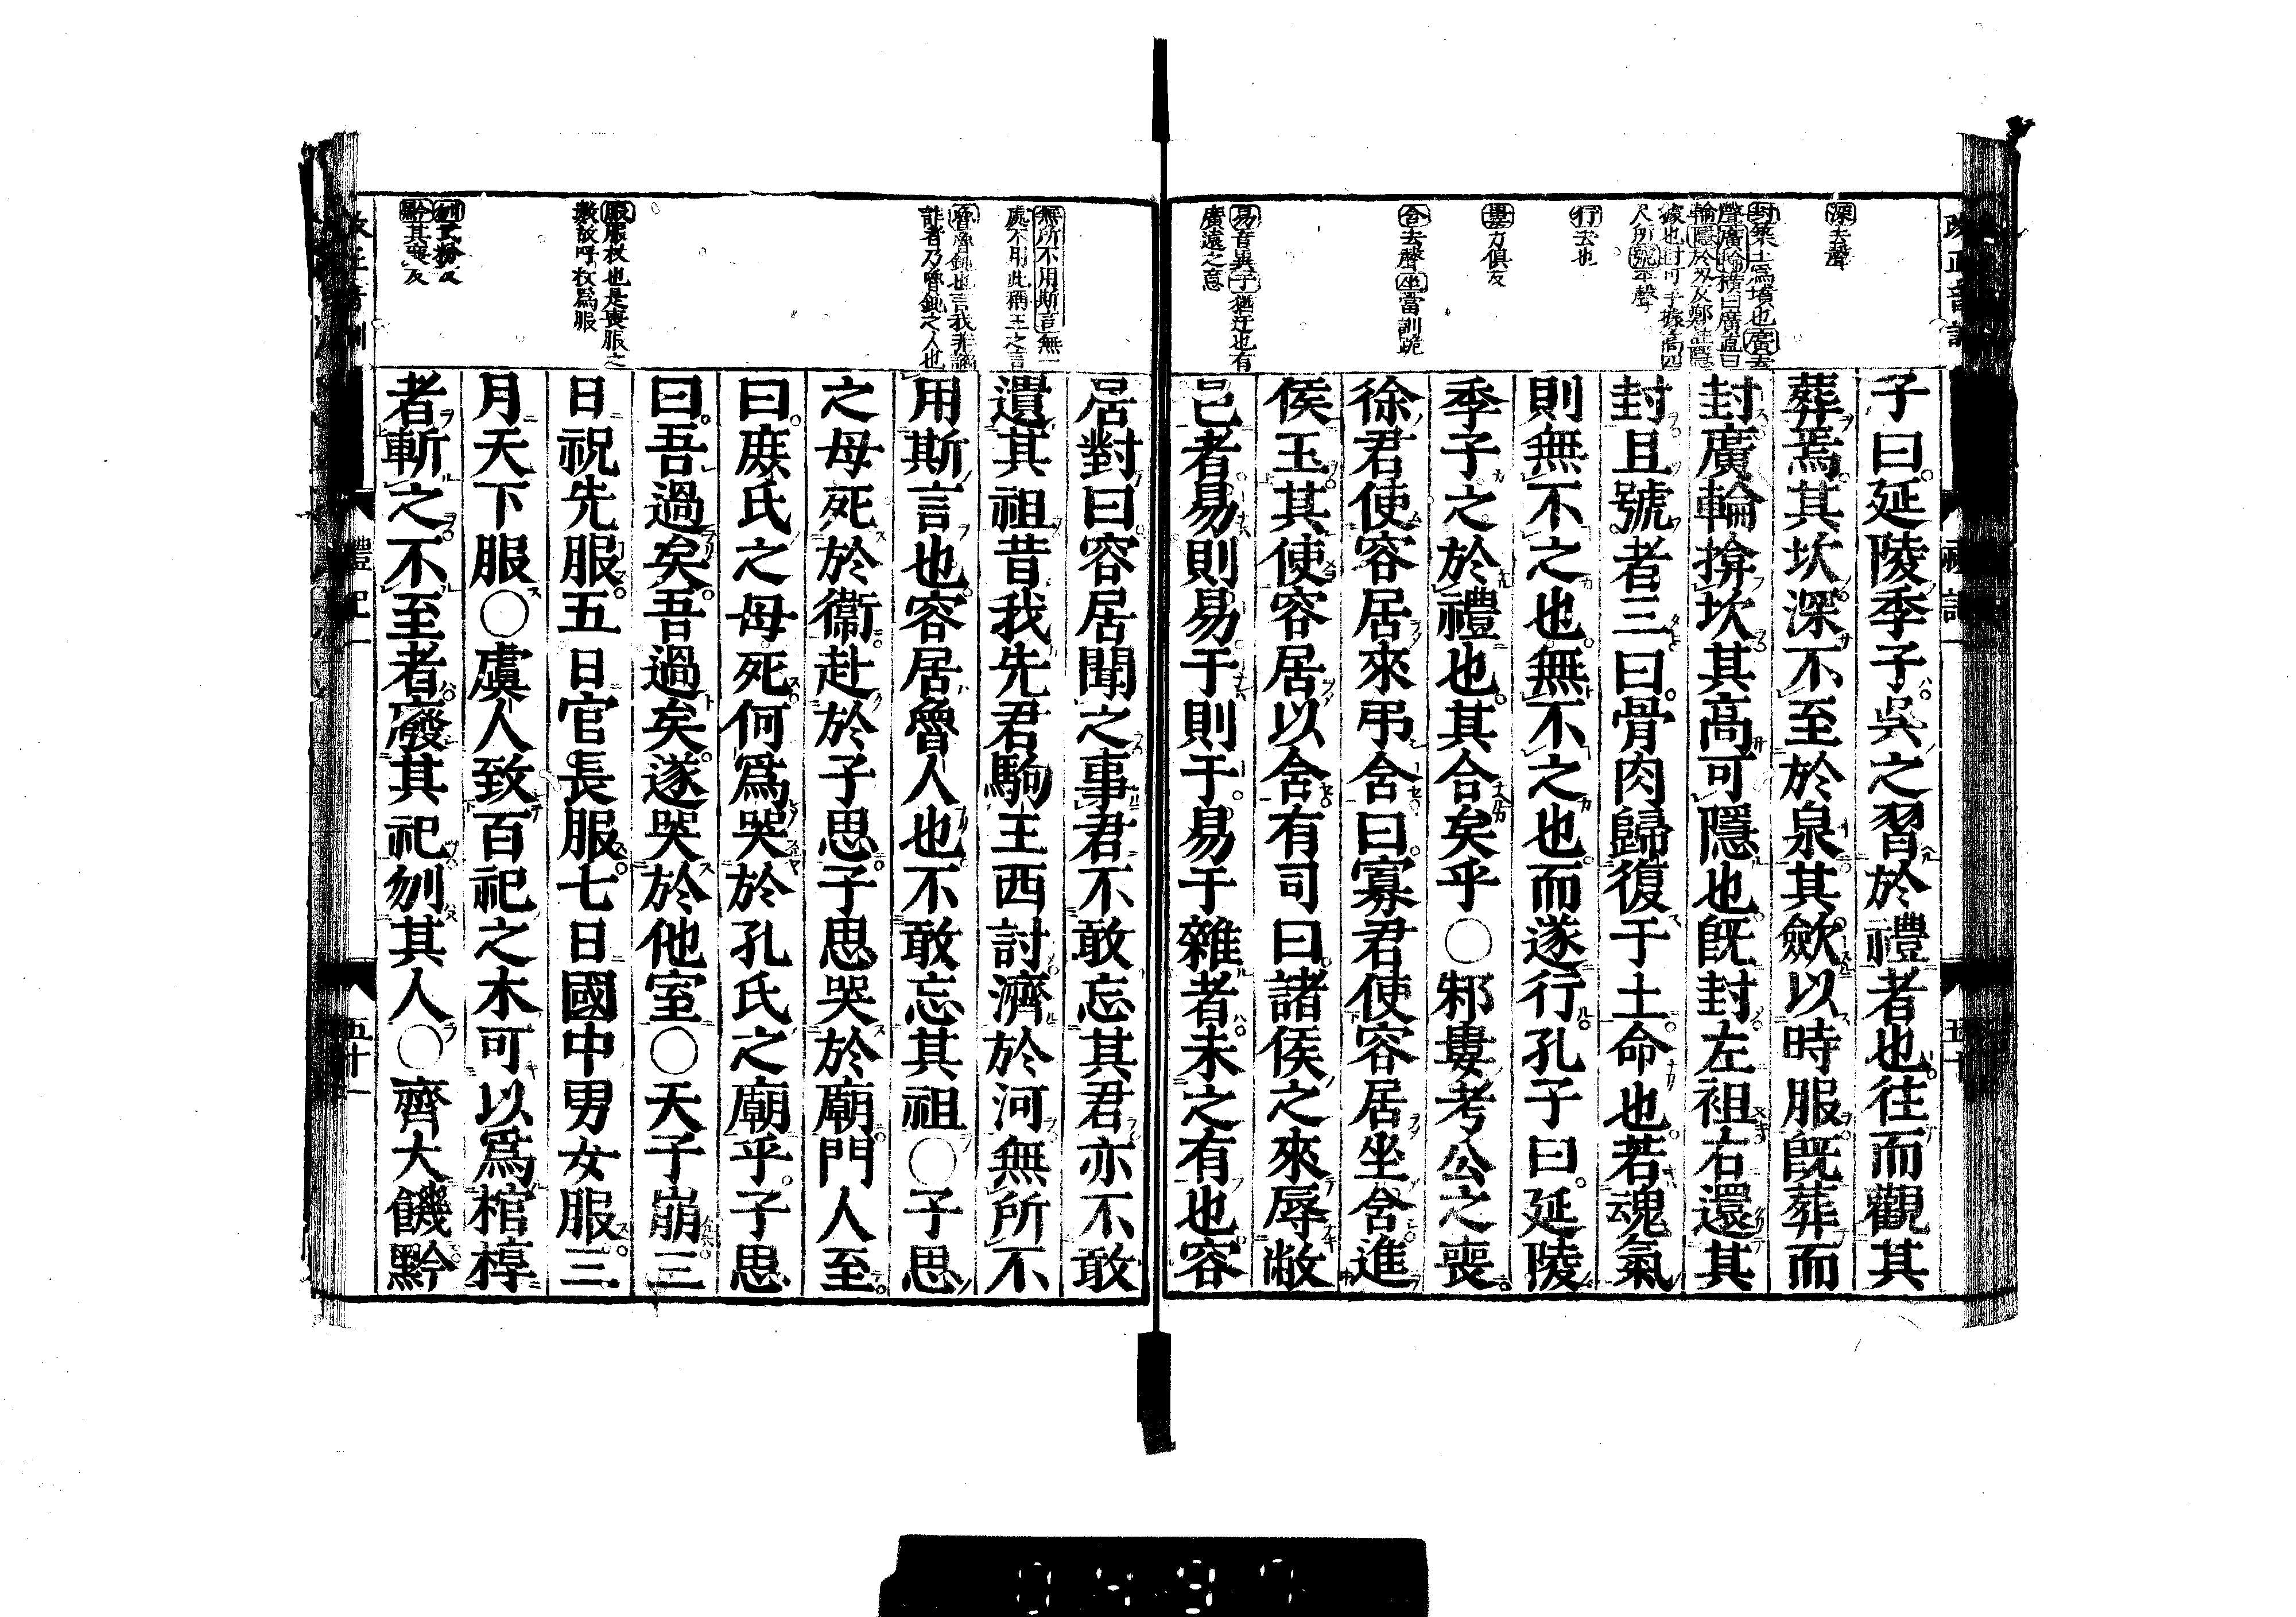 深去聲
封築土爲墳也廣去
聲廣輪橫曰廣直曰
輪隱於刄反鄭
據也封可手據高四
尺所號平聲
行去也
婁力俱反
含去聲坐當訓跪
易音異于猶迂也有
廣遠之意
子曰延陵季子吳之習於禮者也往而觀其
葬焉其坎深不至於泉其斂以時服旣葬而
封廣輪揜坎其高可隱也旣封左袒右還其
封且號者三曰骨肉歸復于土命也若魂氣
則無不之也無不之也而遂行孔子曰延陵
季子之於禮也其合矣乎○邾婁考公之喪
徐君使容居來弔含曰寡君使容居坐含進
侯玉其使容居以含有司曰諸侯之來辱敝
邑者易則易于則于易于雜者未之有也容
無所不用斯言無一
處不用此稱王之言
魯魯鈍也言我非譎
詐者乃魯鈍之人也
服服杖也是喪服之
數故呼杖爲服
刎亡粉反
黔其廉反
居對曰容居聞之事君不敢忘其君亦不敢
遺其祖昔我先君駒王西討濟於河無所不
用斯言也容居魯人也不敢忘其祖○子思
之母死於衞赴於子思子思哭於廟門人至
曰庶氏之母死何爲哭於孔氏之廟乎子思
曰吾過矣吾過矣遂哭於他室○天子崩三
日祝先服五日官長服七日國中男女服三
月天下服○虞人致百祀之木可以爲棺椁
者斬之不至者廢其祀刎其人○齊大饑黔
禮記一
五十一